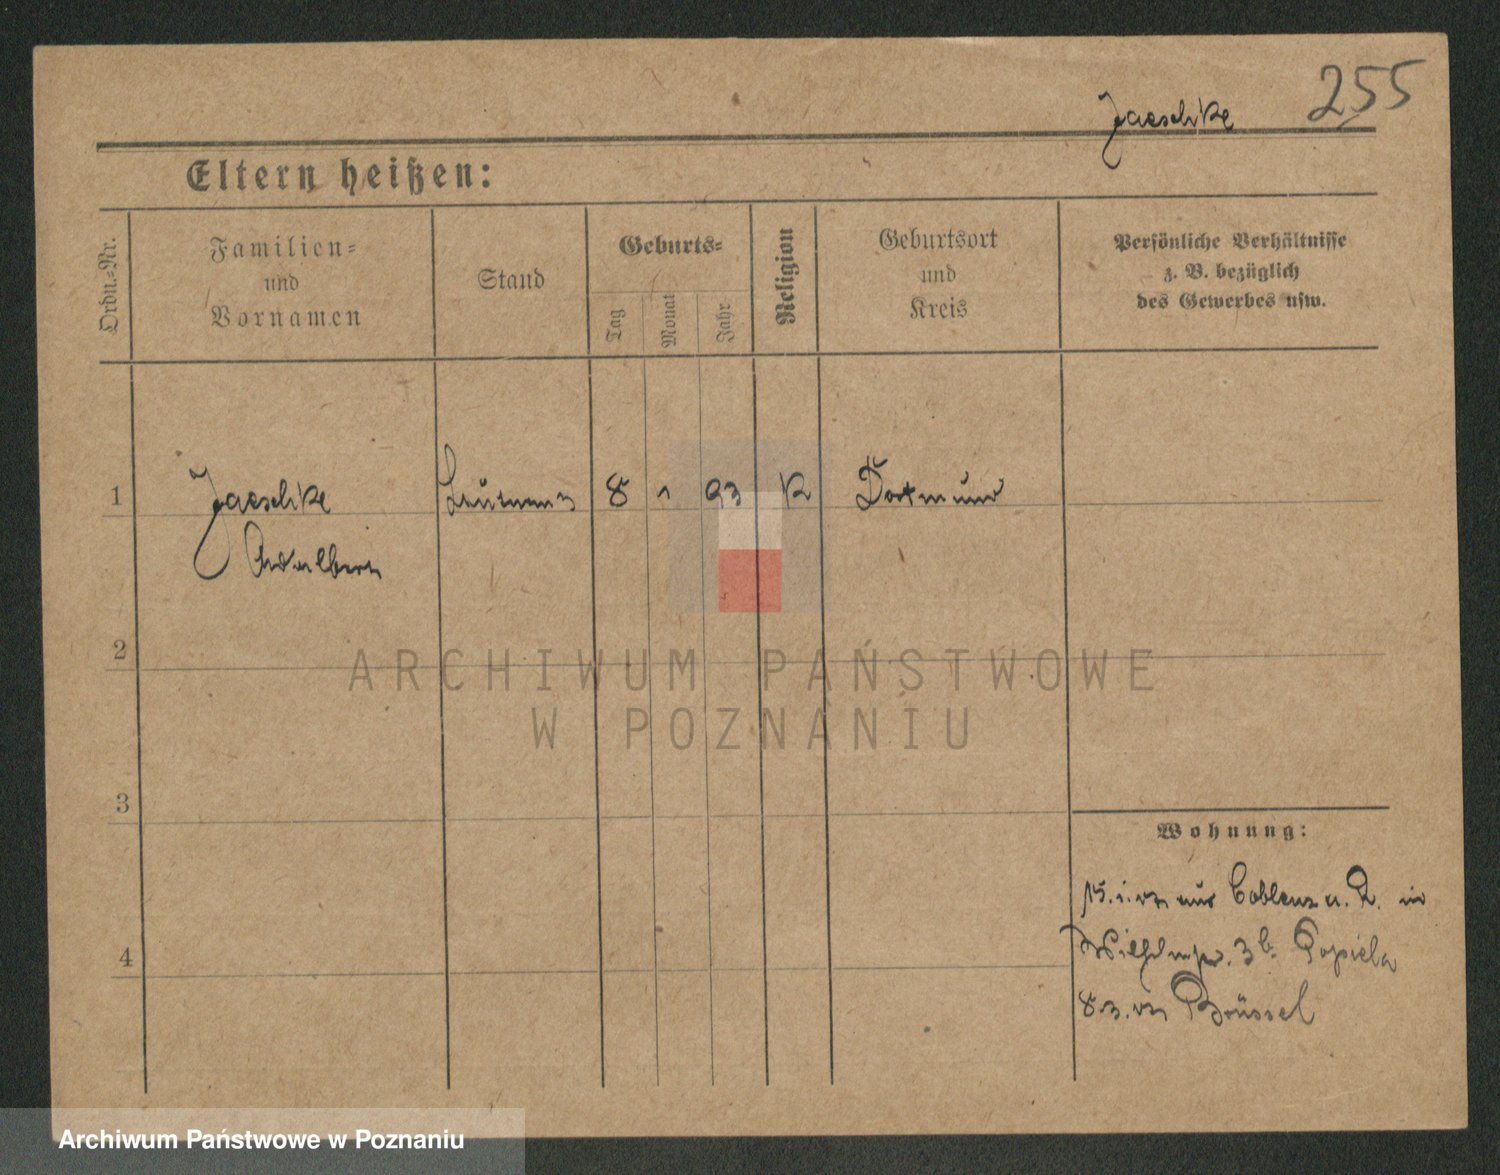 255
Jaeschke
Eltern heißen:
Ordn.-Nr.
Familien-
und
Vornamen
Stand
Geburts-
Tag
Monat
Jahr
Religion
Geburtsort
und
Kreis
Persönliche Verhältnisse
z. B. bezüglich
des Gewerbes usw.
1 Jaeschke Leutnant 8 1 93 K Dortmund
Adalbert
2
3
4
ARCHIWUM PAŃSTWOWE
W POZNANIU
Wohnung:
15. 1. aus Coblenz a. R. in
3 b. Popiela
8. 3. Brüssel
Archiwum Państwowe w Poznaniu